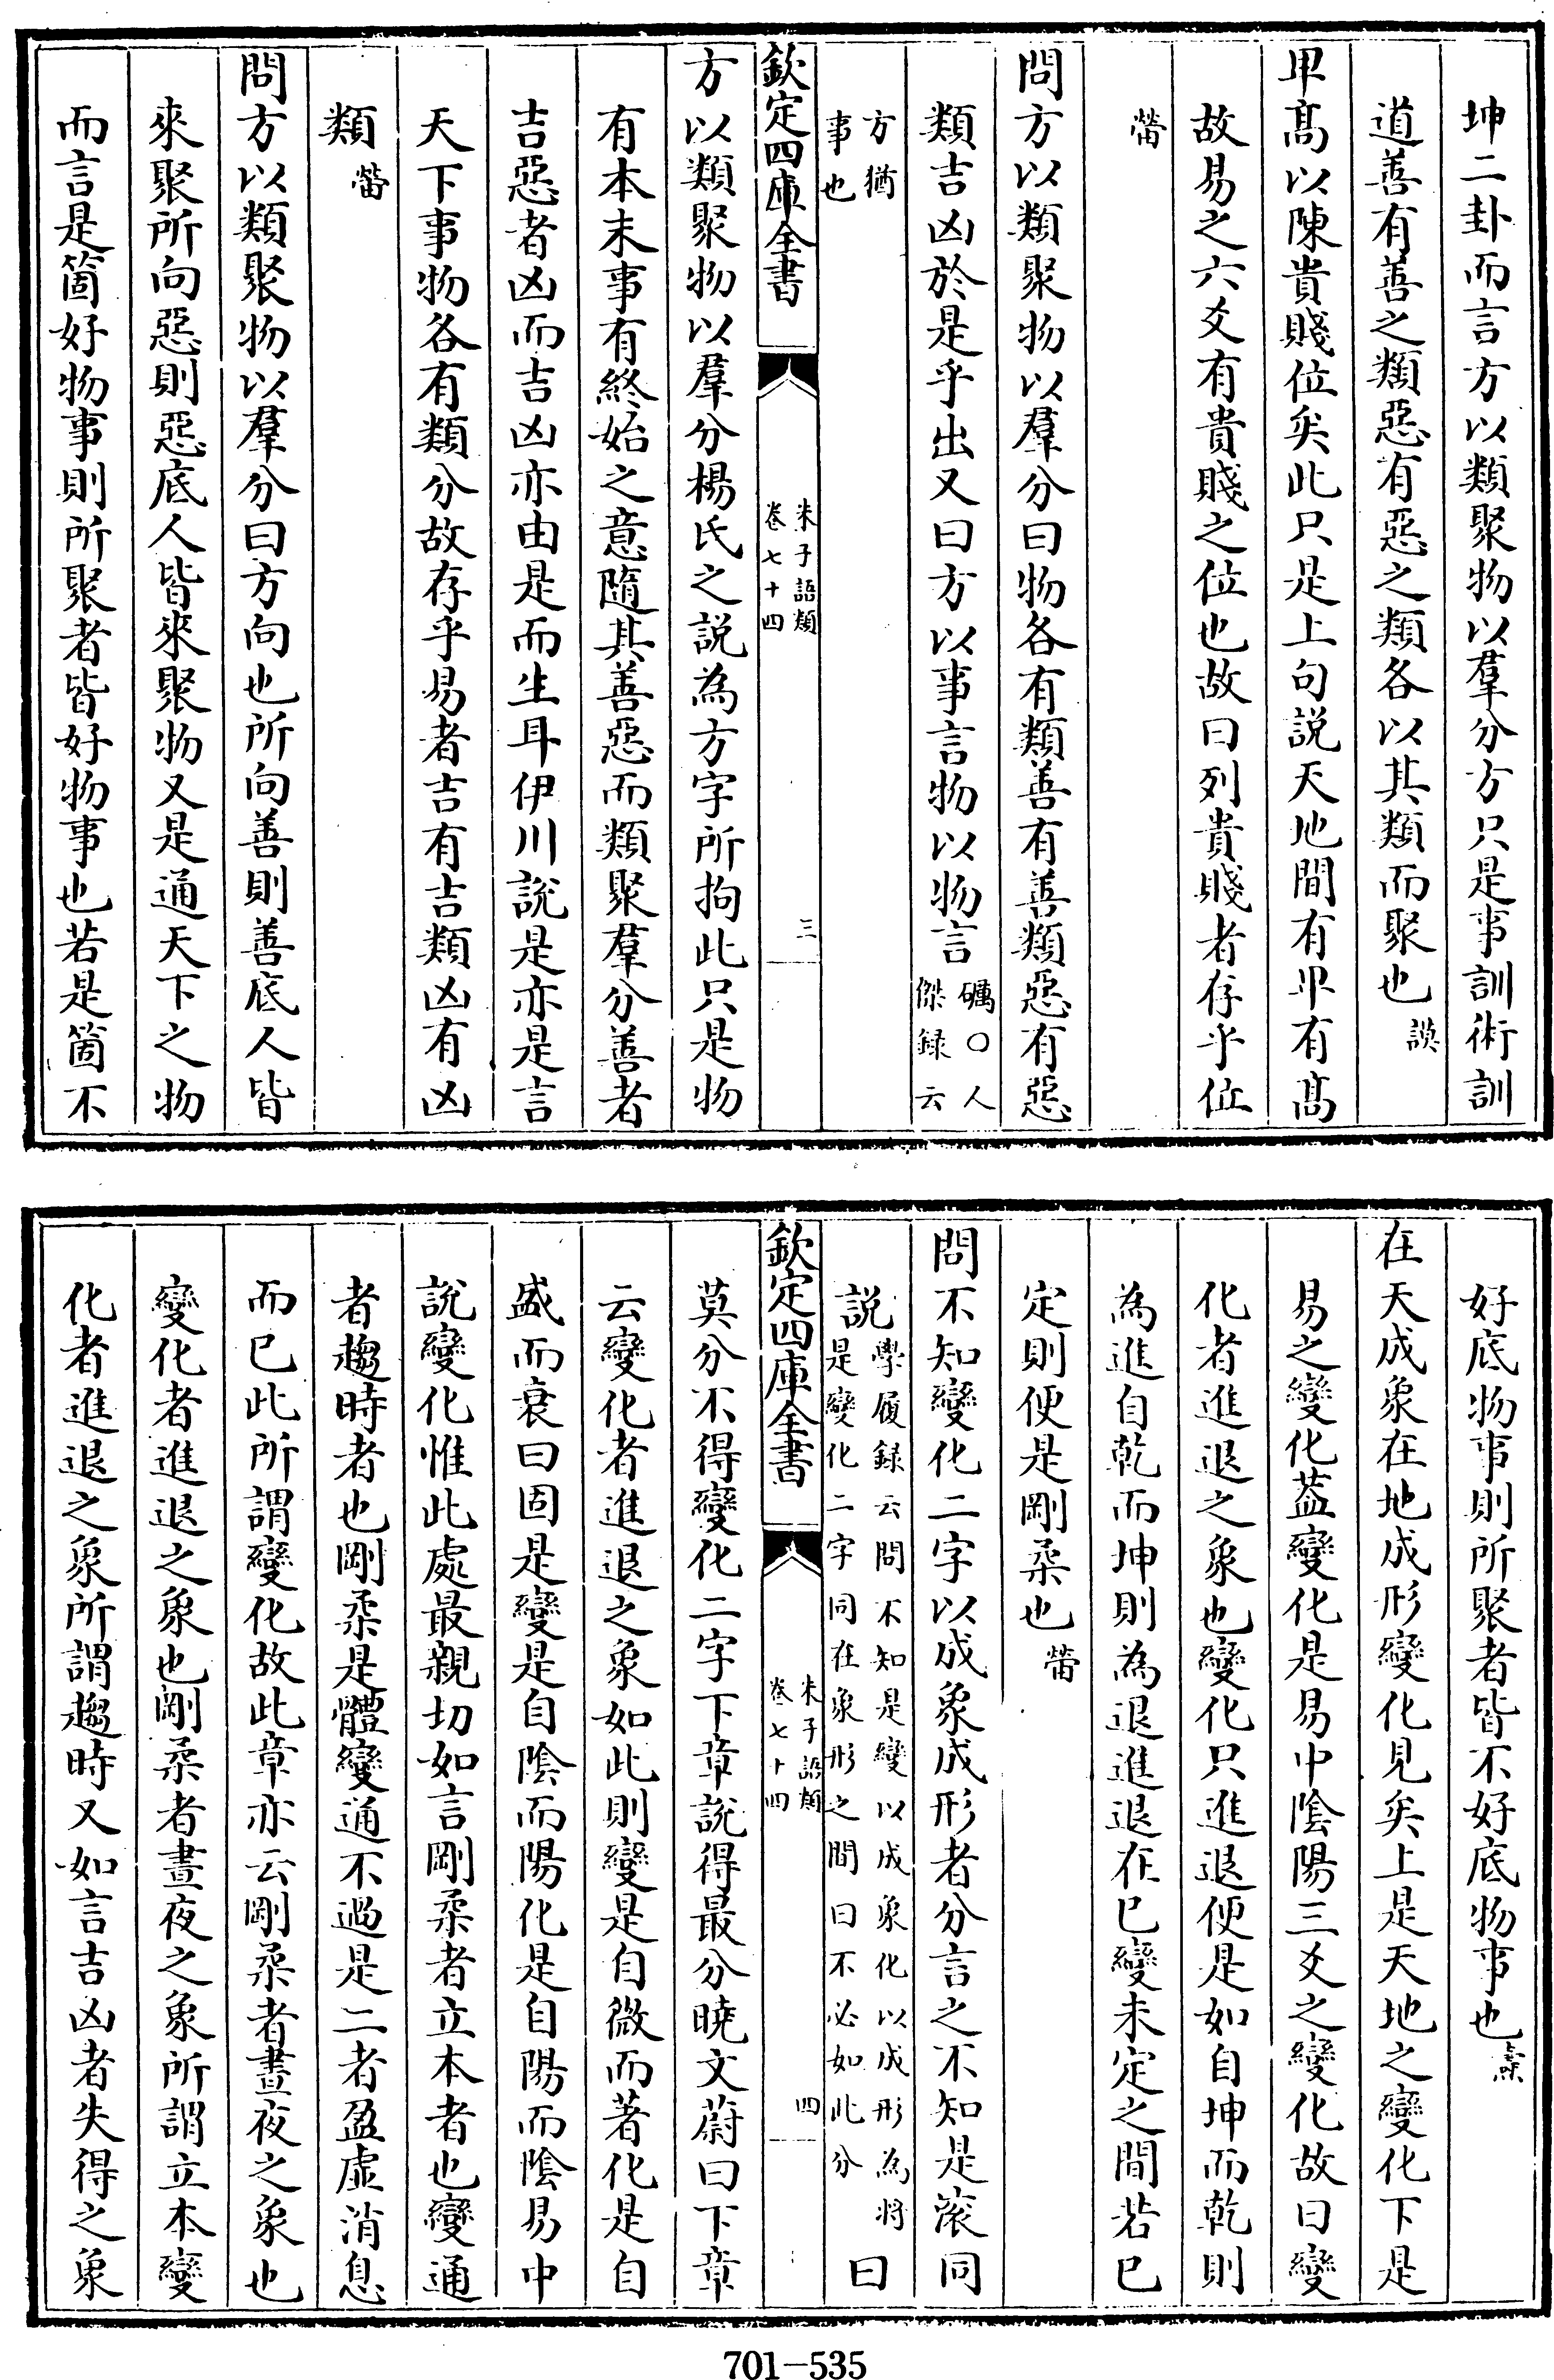 坤二卦而言方以類聚物以羣分方只是事訓術訓
道善有善之類惡有惡之類各以其類而聚也謨
卑髙以陳貴賤位矣此只是上句説天地間有卑有髙
故易之六爻有貴賤之位也故曰列貴賤者存乎位
㽦
問方以類聚物以羣分曰物各有類善有善類惡有惡
類吉凶於是乎出又曰方以事言物以物言礪○人
傑録云
方猶
事也
欽定四庫全書
朱子語類
卷七十四
三
方以類聚物以羣分楊氏之説為方字所拘此只是物
有本末事有終始之意隨其善惡而類聚羣分善者
吉惡者凶而吉凶亦由是而生耳伊川説是亦是言
天下事物各有類分故存乎易者吉有吉類凶有凶
類㽦
問方以類聚物以羣分曰方向也所向善則善底人皆
來聚所向惡則惡底人皆來聚物又是通天下之物
而言是箇好物事則所聚者皆好物事也若是箇不
好底物事則所聚者皆不好底物事也燾
在天成象在地成形變化見矣上是天地之變化下是
易之變化葢變化是易中陰陽二爻之變化故曰變
化者進退之象也變化只進退便是如自坤而乾則
為進自乾而坤則為退進退在已變未定之間若已
定則便是剛柔也㽦
問不知變化二字以成象成形者分言之不知是滚同
説學履録云問不知是變以成象化以成形為將
是變化二字同在象形之間曰不必如此分曰
欽定四庫全書
朱子語類
卷七十四
四
莫分不得變化二字下章説得最分曉文蔚曰下章
云變化者進退之象如此則變是自微而著化是自
盛而衰曰固是變是自陰而陽化是自陽而陰易中
説變化惟此處最親切如言剛柔者立本者也變通
者趨時者也剛柔是體變通不過是二者盈虚消息
而已此所謂變化故此章亦云剛柔者晝夜之象也
變化者進退之象也剛柔者晝夜之象所謂立本變
化者進退之象所謂趨時又如言吉凶者失得之象
701-535